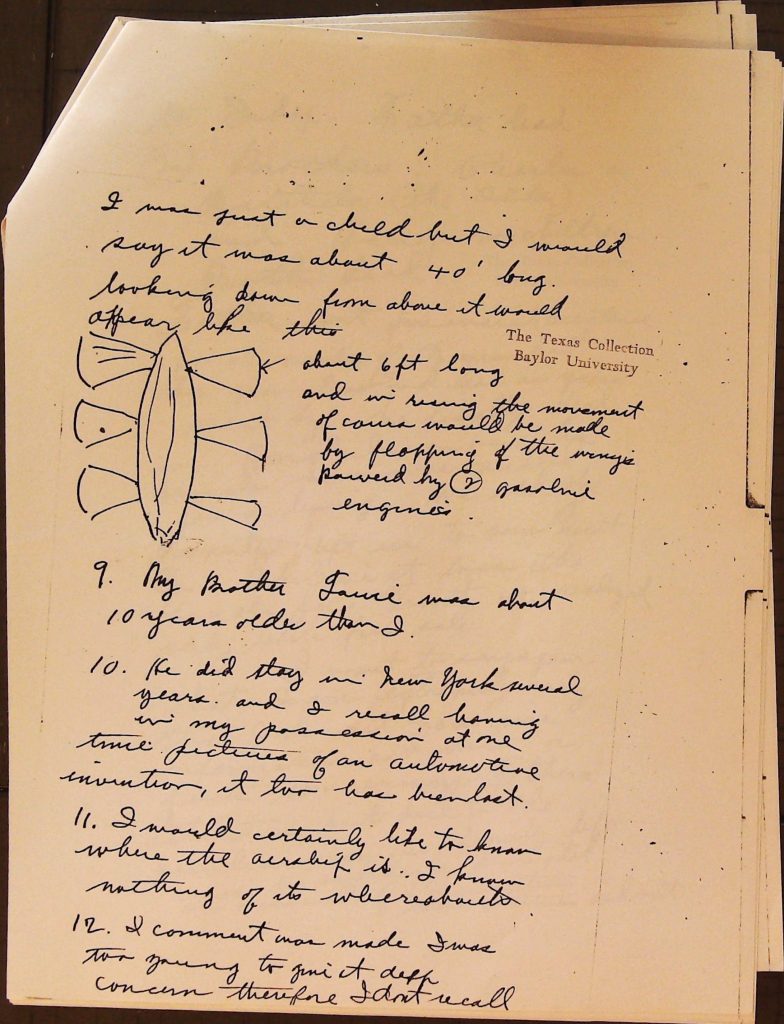 I was just a child but I would
say it was about 40' long.
looking down from above it would
appear like this
The Texas Collection
Baylor University
about 6 ft long
and in rising the movement
of cours would be made
by flopping of the wings
powerd by 2 gasoline
engines.
9. My Brother was about
10 years older than I.
10. He did stay in New York several
years. and I recall having
in my possession at one
time pictures of an automotive
invention, it too has been lost.
11. I would certainly like to know
where the airship is.. I know
nothing of its whereabouts.
12. I comment was made I was
too young to give it
concern therefore I dont recall